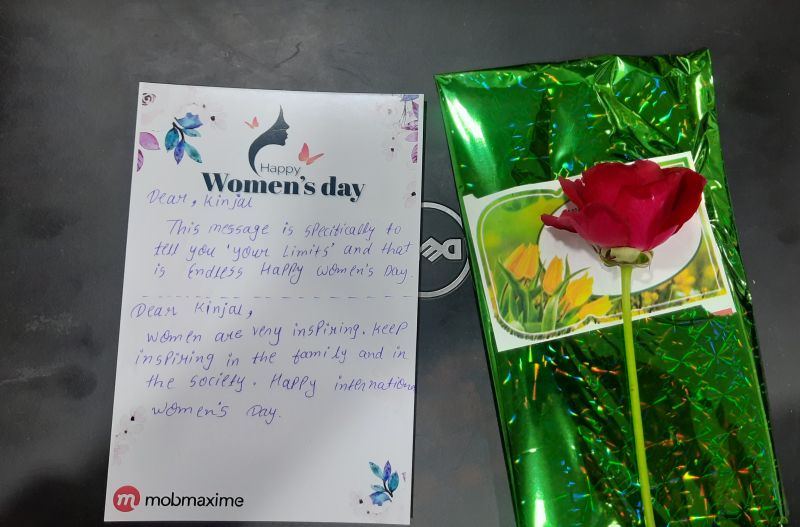 Happy
Women's day
Dear, Kinjal
This message is specifically to
tell you 'your Limits' and that
is Endless Happy Women's Day.
Dear Kinjal,
Women are very inspiring. Keep
inspiring in the family and in
the society. Happy internationa
women's Day.
mobmaxime
DELL